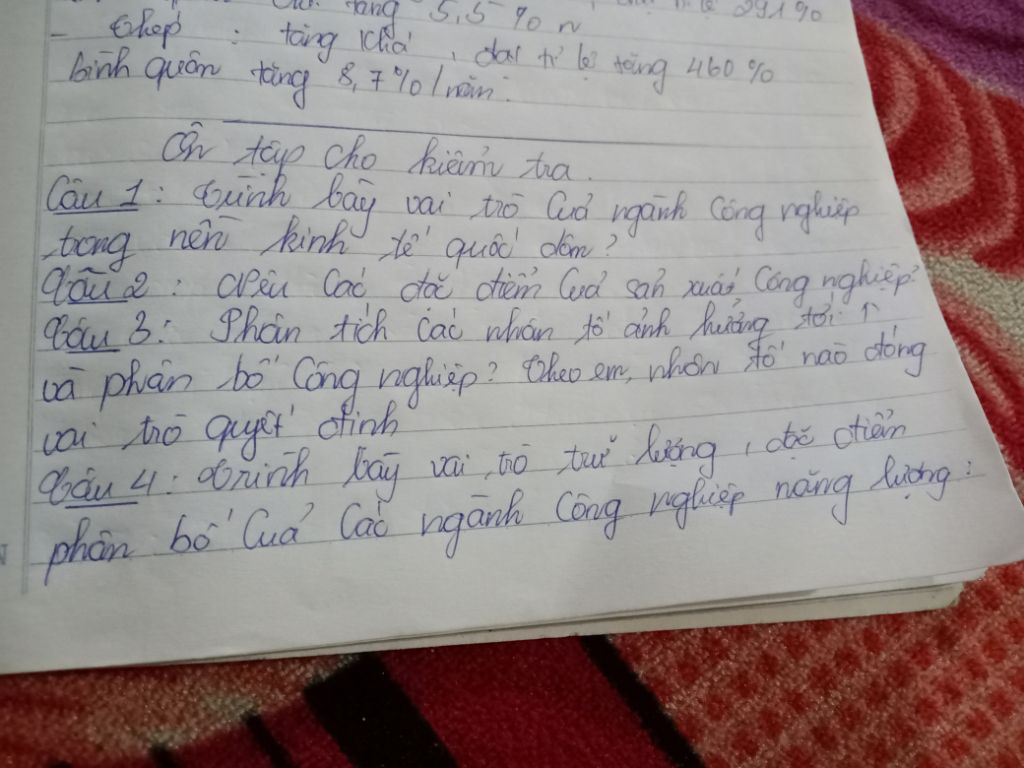 tăng 5,5% n
- Thép : tăng khá, đạt tỉ lệ tăng 460%
bình quân tăng 8,7%/năm.
Ôn tập cho kiểm tra.
Câu 1: Trình bày vai trò của ngành công nghiệp
trong nền kinh tế quốc dân?
Câu 2: Nêu các đặc điểm của sản xuất công nghiệp?
Câu 3: Phân tích các nhân tố ảnh hưởng tới ↑
và phân bố công nghiệp? Theo em, nhân tố nào đóng
vai trò quyết định
Câu 4: Trình bày vai trò trữ lượng, đặc điểm
phân bố của các ngành công nghiệp năng lượng?